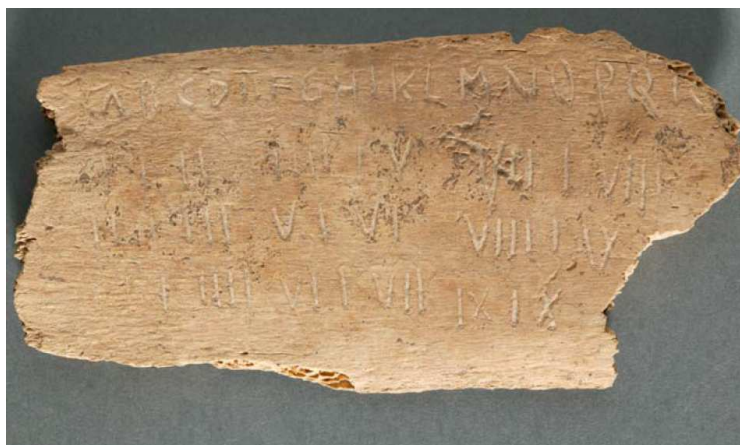 A B C D E F G H I K L M N O P Q R
I II I V VII I VIII
III V I VI VIIII I V
I IIII VI I VII IX I X